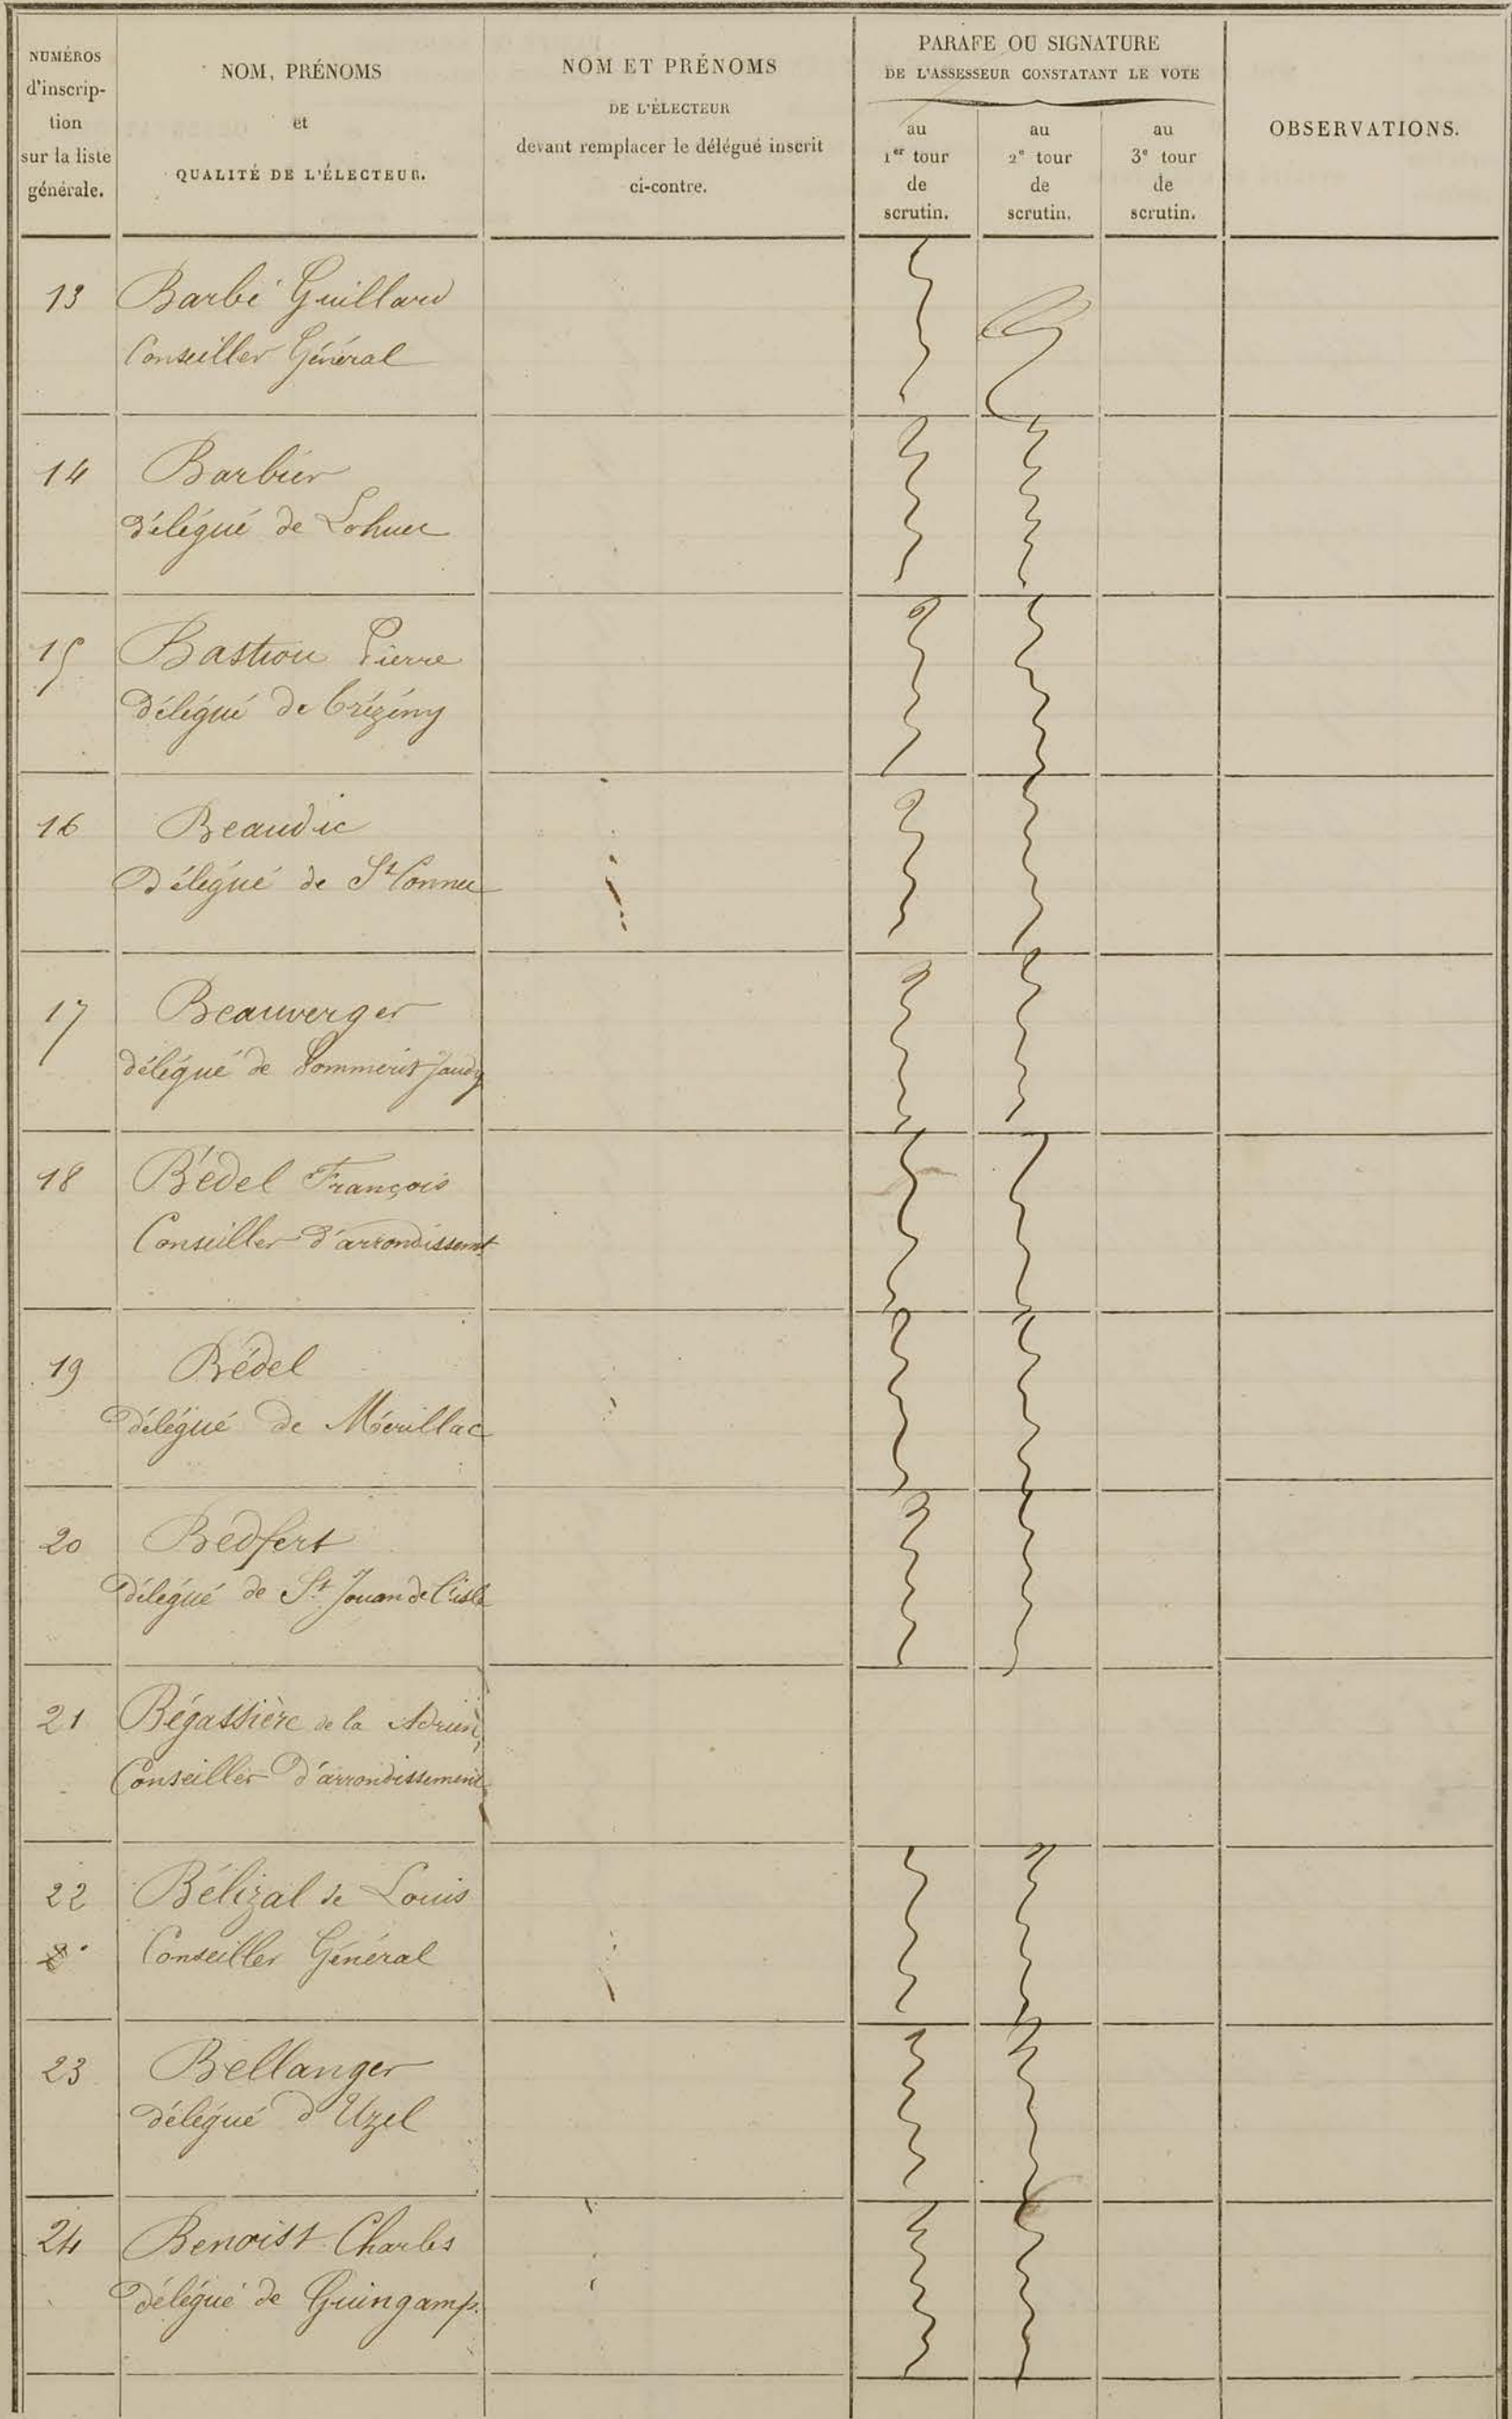 NUMÉROS
d'inscrip-
tion
sur la liste
générale.
NOM, PRÉNOMS
et
QUALITÉ DE L'ÉLECTEUR.
NOM ET PRÉNOMS
DE L'ÉLECTEUR
devant remplacer le délégué inscrit
ci-contre.
PARAFE OU SIGNATURE
DE L'ASSESSEUR CONSTATANT LE VOTE
au
1er tour
de
scrutin.
au
2e tour
de
scrutin.
au
3e tour
de
scrutin.
OBSERVATIONS.
13 Barbé Guillard
Conseiller Général
14 Barbier
délégué de Lohuec
15 Bastiou Pierre
Délégué de Trézény
16 Beaudic
Délégué de St Connec
17 Beauverger
délégué de Pommerit Jaudy
18 Bédel François
Conseiller d'arrondissemt
19 Bédel
délégué de Mérillac
20 Bedfert
délégué de St Jouan de l'isle
21 Bégassière de la Adrien,
Conseiller d'arrondissement
22 Bélizal de Louis
Conseiller Général
23 Bellanger
délégué d'Uzel
24 Benoist Charles
délégué de Guingamp.